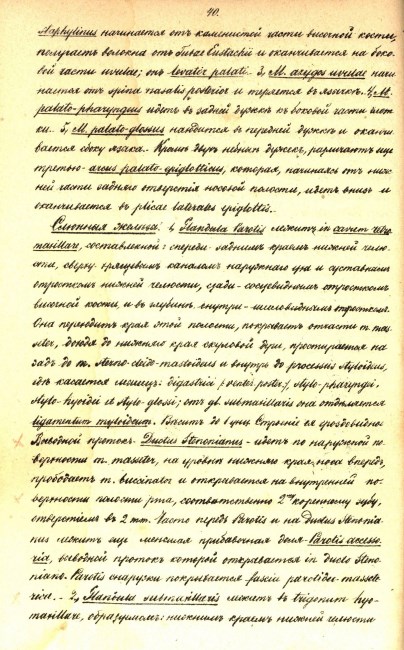 40.
Staphylinus начинается отъ каменистой части височной кости,
получаетъ волокна отъ Tubae Eustachii и оканчивается на боко-
вой части uvulae; онъ levator palati. 3, M. azygos uvulae начи-
нается отъ spina nasalis posterior и теряется въ язычкѣ. 4, M.
palato-pharyngeus идетъ въ задней дужкѣ къ боковой части глот-
ки. 5, M. palato-glossus находится въ передней дужкѣ и оканчи-
вается сбоку языка. Кромѣ двухъ небныхъ дужекъ, различаютъ еще
третью - arcus palato-epiglotticus, которая, начинаясь отъ ниж-
ней части задняго отверстія носовой полости, идетъ внизъ и
оканчивается въ plicae laterales epiglottis.
Слюнныя железы: 1, Glandula Parotis лежитъ in cavum retro
maxillare, составленной: спереди - заднимъ краемъ нижней челю-
сти, сверху - хрящевымъ каналомъ наружнаго уха и суставнымъ
отросткомъ нижней челюсти, сзади - сосцевиднымъ отросткомъ
височной кости, и въ глубинѣ, снутри - шиловиднымъ отросткомъ.
Она переходитъ края этой полости, покрываетъ отчасти m. mas-
seter, доходя до нижняго края скуловой дуги, простирается на-
задъ до m. sterno-cleido-mastoideus и внутрь до processus styloideus,
гдѣ касается мышцъ: digastricus (venter poster.), stylo-pharyngei,
stylo-hyoidei et stylo-glossi; отъ gl. submaxillaris она отдѣляется
ligamentum myloideum. Вѣситъ до 1 унц. Строеніе ея гроздовидно.
Выводной протокъ - Ductus Stenonianus - идетъ по наружной по-
верхности m. masseter, на уровнѣ нижняго края носа впередъ,
прободаетъ m. buccinator и открывается на внутренней по-
верхности полости рта, соотвѣтственно 2му коренному зубу,
отверстіемъ въ 2 mm. Часто передъ Parotis и на Ductus Stenonia-
nus лежитъ еще меньшая прибавочная доля - Parotis accesso-
ria, выводной протокъ которой открывается in ducto Steno-
niano. Parotis снаружи покрывается fascia parotideo-massete-
rica. - 2, Glandula submaxillaris лежитъ въ trigonum hyo-
maxillare, образуемомъ: нижнимъ краемъ нижней челюсти